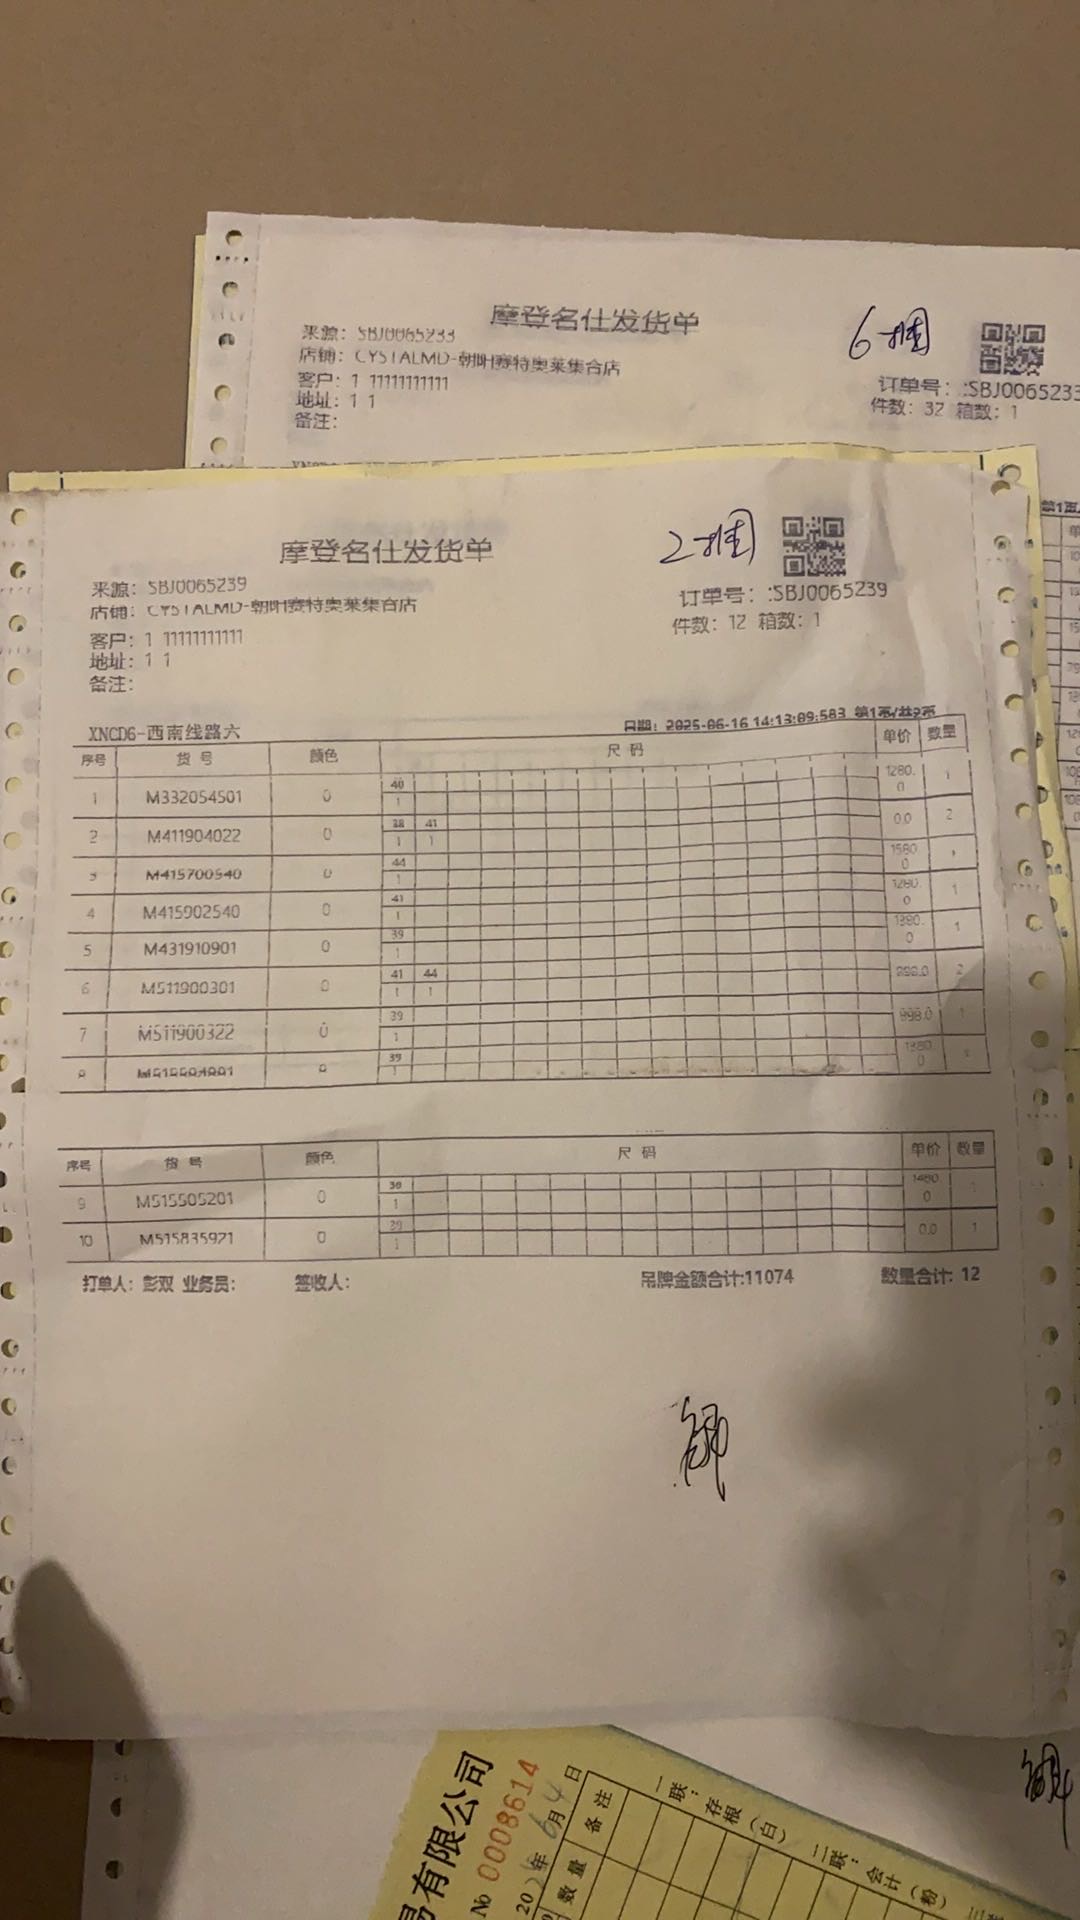 摩登名仕发货单
6捆
来源：SBJ0065233
店铺：CYSTALMD-朝阳赛特奥莱集合店
客户：1 11111111111
地址：1 1
备注：
订单号：:SBJ0065233
件数：32 箱数：1
第1页
摩登名仕发货单
2捆
来源：SBJ0065239
店铺：CYSTALMD-朝阳赛特奥莱集合店
客户：1 11111111111
地址：1 1
备注：
订单号：:SBJ0065239
件数：12 箱数：1
XNCD6-西南线路六
日期：2025-06-16 14:13:09:583 第1页/共2页
序号 货号 颜色 尺码 单价 数量
1 M332054501 0 40 1 1280.0 1
2 M411904022 0 38 41 1 1 0.0 2
3 M415700540 0 44 1 1580.0 1
4 M415902540 0 41 1 1280.0 1
5 M431910901 0 39 1 1380.0 1
6 M511900301 0 41 44 1 1 998.0 2
7 M511900322 0 39 1 998.0 1
8 0 39 1 1
序号 货号 颜色 尺码 单价 数量
9 M515505201 0 1 1
10 M515835921 0 39 1 0.0 1
打单人：彭双 业务员： 签收人： 吊牌金额合计:11074 数量合计：12
易有限公司
No 0008614
年6月4日
数量 备注
一联：存根（白） 二联：会计（粉）